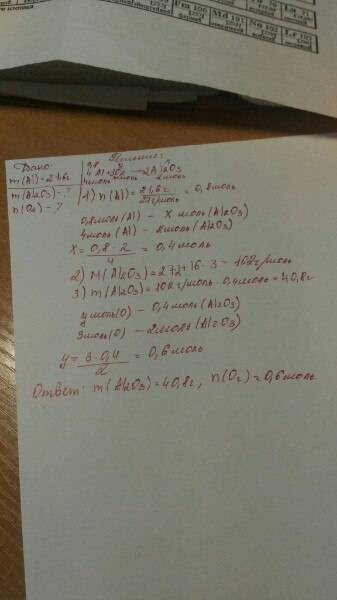 Дано:
m(Al)=21,6г
m(Al2O3)-?
n(O2)-?
Решение:
0,8 y x
4Al+3O2→2Al2O3
4моль 3моль 2моль
1) n(Al)=21,6г/27г/моль=0,8моль
0,8моль(Al) – x моль(Al2O3)
4моль(Al) – 2моль(Al2O3)
X=0,8·2/4=0,4моль
2) M(Al2O3)=27·2+16·3=102г/моль
3) m(Al2O3)=102г/моль·0,4моль=40,8г
y моль(O) – 0,4моль(Al2O3)
3моль(O) – 2моль(Al2O3)
y=3·0,4/2=0,6моль
Ответ: m(Al2O3)=40,8г, n(O2)=0,6моль.